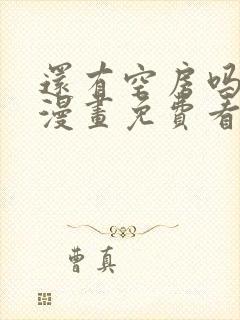 還有空房吗
漫畫免費看
曹真